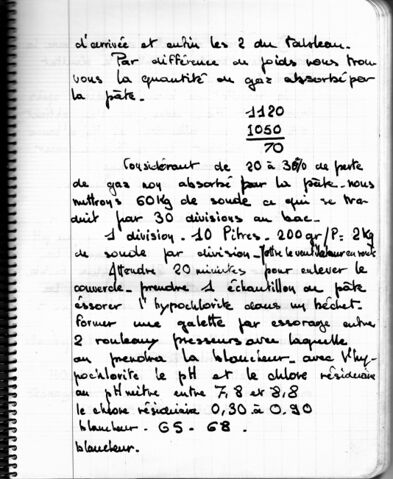 d'arrivée et enfin les 2 du tableau.
Par différence de poids nous trou
vons la quantité de gaz absorbé par
la pâte.
1120
1050
70
Considérant de 20 à 30% de perte
de gaz non absorbé par la pâte - nous
mettrons 60Kg de soude ce qui se tra
duit par 30 divisions au bac.
1 division - 10 litres - 200gr/l = 2Kg
de soude par division - mettre le ventilateur en route
Attendre 20 minutes pour enlever le
couvercle - prendre 1 échantillon de pâte
éssorer l'hypochlorite dans un béchet.
Former une galette par essorage entre
2 rouleaux presseurs avec laquelle
on prendra la blancheur - avec l'hy-
pochlorite le pH et le chlore résiduaire
au pHmètre entre 7,8 et 8,8
le chlore résiduaire 0,30 à 0.90
blancheur - 65 - 68 .
blancheur.